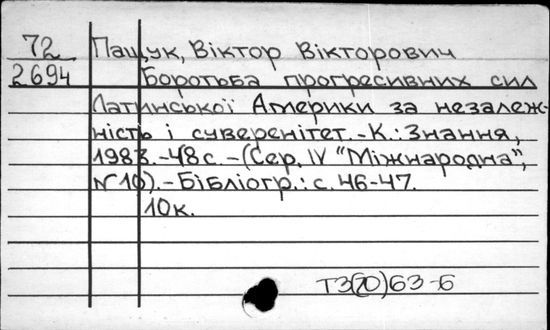 72 Пащук, Віктор Вікторович
2694 Боротьба прогресивних сил
Латинської Америки за незалеж-
ність і суверенітет.-К.: Знання,
1983.-48с.-(Сер. IV "Міжнародна",
№10).-Бібліогр.: с. 46-47.
10к.
Т3(70)63-6